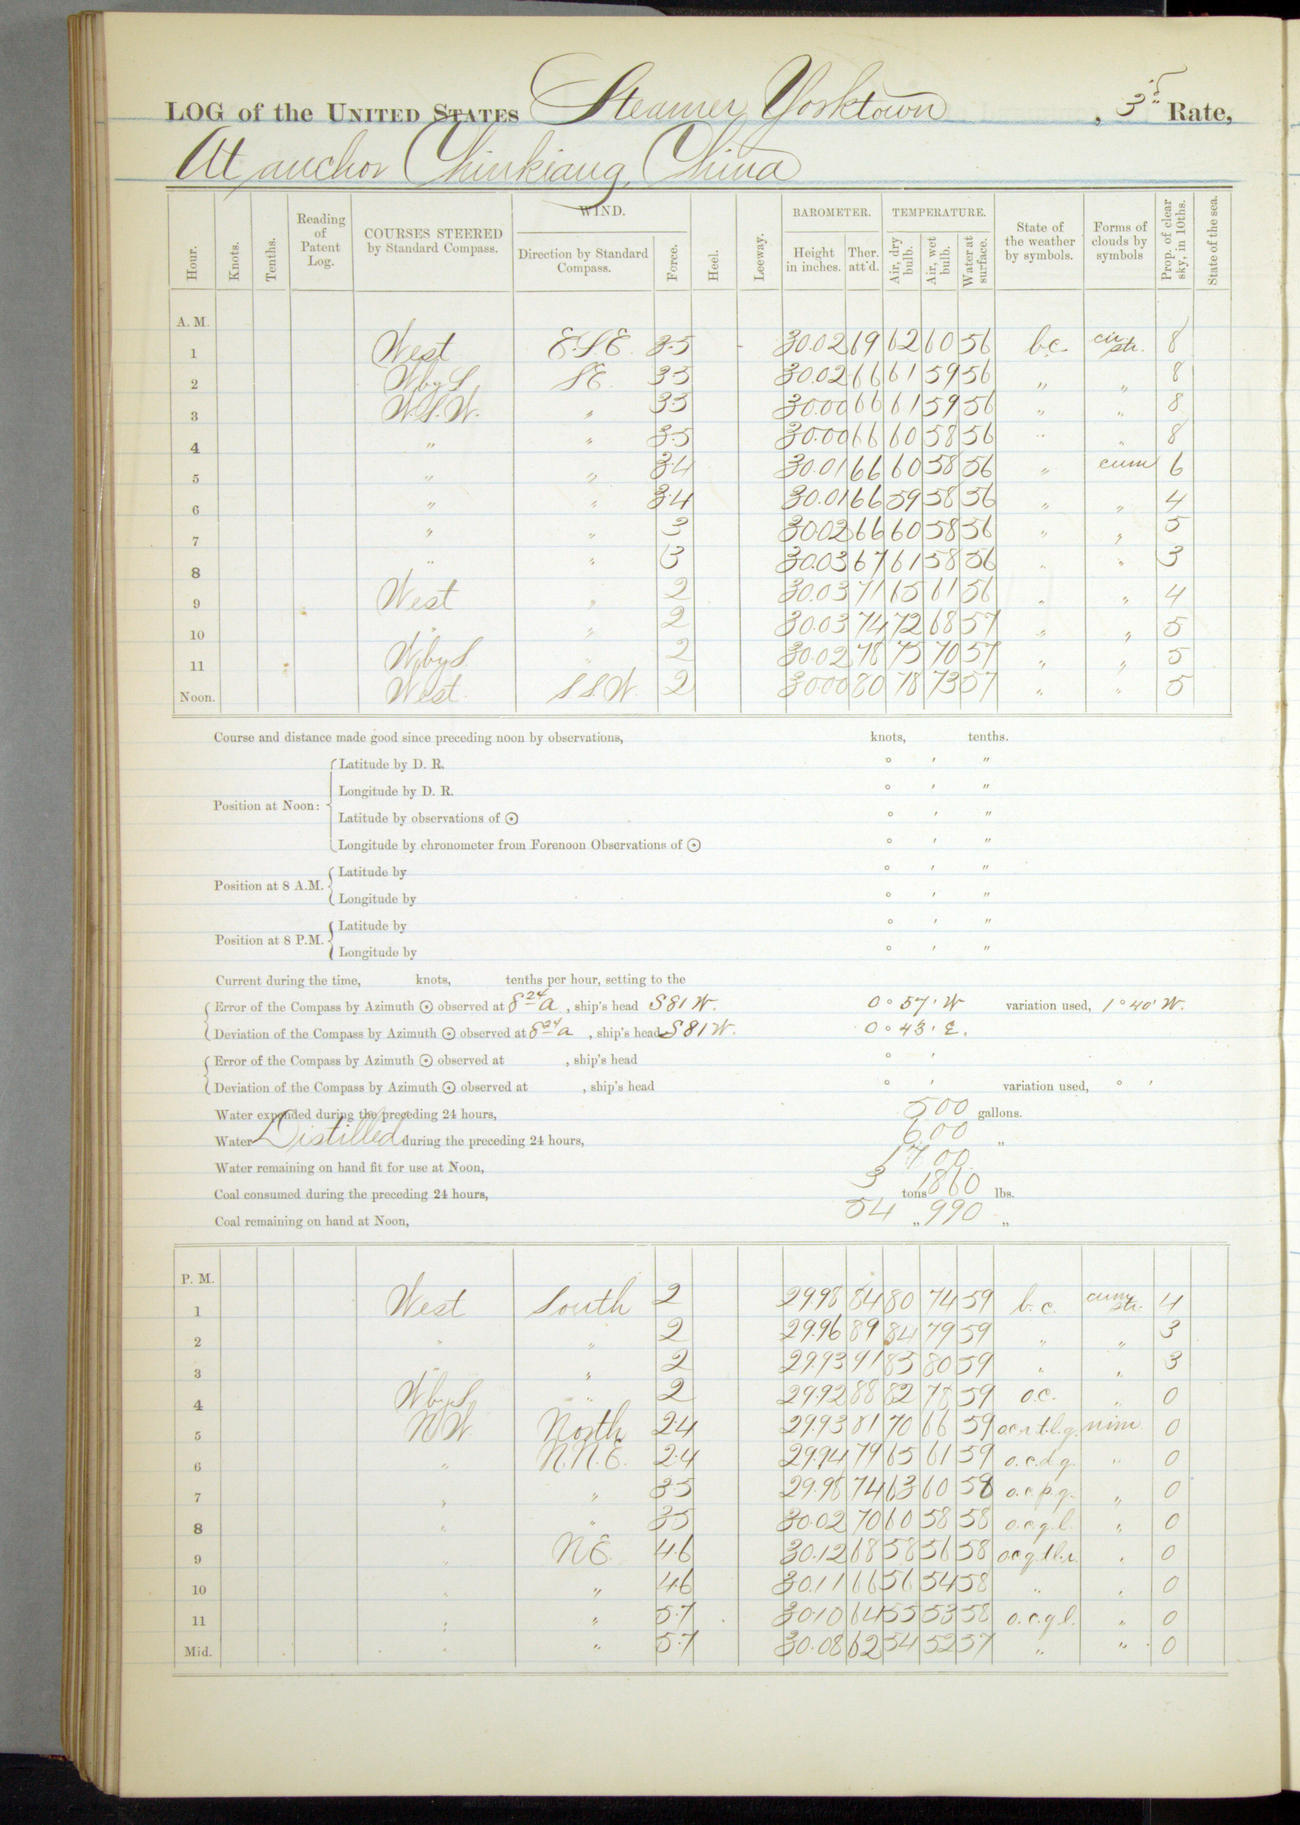 LOG of the UNITED STATES Steamer Yorktown, 3rd Rate,
At anchor Chinkiang, China
Hour. Knots. Tenths. Reading of Patent Log. COURSES STEERED by Standard Compass. WIND. Direction by Standard Compass. Force. Heel. Leeway. BAROMETER. Height in inches. Ther. att'd. TEMPERATURE. Air, dry bulb. Air, wet bulb. Water at surface. State of the weather by symbols. Forms of clouds by symbols Prop. of clear sky, in 10ths. State of the sea.
A. M.
1 West E.S.E. 3.5 - 30.02 69 62 60 56 b.c. cir str. 8
2 W by S SE. 3.5 30.02 66 61 59 56 " " 8
3 W.S.W. " 3.3 30.00 66 61 59 56 " " 8
4 " " 3.5 30.00 66 60 58 56 " " 8
5 " " 3.4 30.01 66 60 58 56 " cum 6
6 " " 3.4 30.01 66 59 58 56 " " 4
7 " " 3 30.02 66 60 58 56 " " 5
8 " " 3 30.03 67 61 58 56 " " 3
9 West " 2 30.03 71 65 61 56 " " 4
10 " " 2 30.03 74 72 68 57 " " 5
11 W by S " 2 30.02 78 75 70 57 " " 5
Noon. West S S W. 2 30.00 80 78 73 57 " " 5
Course and distance made good since preceding noon by observations, knots, tenths.
Position at Noon: Latitude by D. R. ° ' "
Longitude by D. R. ° ' "
Latitude by observations of ☉ ° ' "
Longitude by chronometer from Forenoon Observations of ☉ ° ' "
Position at 8 A.M. Latitude by ° ' "
Longitude by ° ' "
Position at 8 P.M. Latitude by ° ' "
Longitude by ° ' "
Current during the time, knots, tenths per hour, setting to the
Error of the Compass by Azimuth ☉ observed at 8 24 a , ship's head S 81 W. 0 ° 57 ' W variation used, 1 ° 40' W.
Deviation of the Compass by Azimuth ☉ observed at 8 24 a , ship's head S 81 W. 0 ° 43 ' E.
Error of the Compass by Azimuth ☉ observed at , ship's head ° '
Deviation of the Compass by Azimuth ☉ observed at , ship's head ° ' variation used, ° '
Water expended during the preceding 24 hours, 500 gallons.
Water Distilled during the preceding 24 hours, 600 "
Water remaining on hand fit for use at Noon, 1700
Coal consumed during the preceding 24 hours, 3 tons 1860 lbs.
Coal remaining on hand at Noon, 54 " 990 "
P. M.
1 West South 2 29.98 84 80 74 59 b. c. cum str. 4
2 " " 2 29.96 89 84 79 59 " " 3
3 " " 2 29.93 91 85 80 59 " " 3
4 W by S " 2 29.92 88 82 78 59 o.c. " 0
5 NW. North 2.4 29.93 81 70 66 59 o.c.r.t.l.q. nim 0
6 " N.N.E. 2.4 29.94 79 65 61 59 o.c.d.q. " 0
7 " " 3.5 29.98 74 63 60 58 o.c.p.q. " 0
8 " " 3.5 30.02 70 60 58 58 o.c.q.l. " 0
9 " N.E. 4.6 30.12 68 58 56 58 o.c.q.t.l.r. " 0
10 " " 4.6 30.11 66 56 54 58 " " 0
11 " " 5.7 30.10 64 55 53 58 o.c.q.l. " 0
Mid. " " 5.7 30.08 62 54 52 57 " " 0